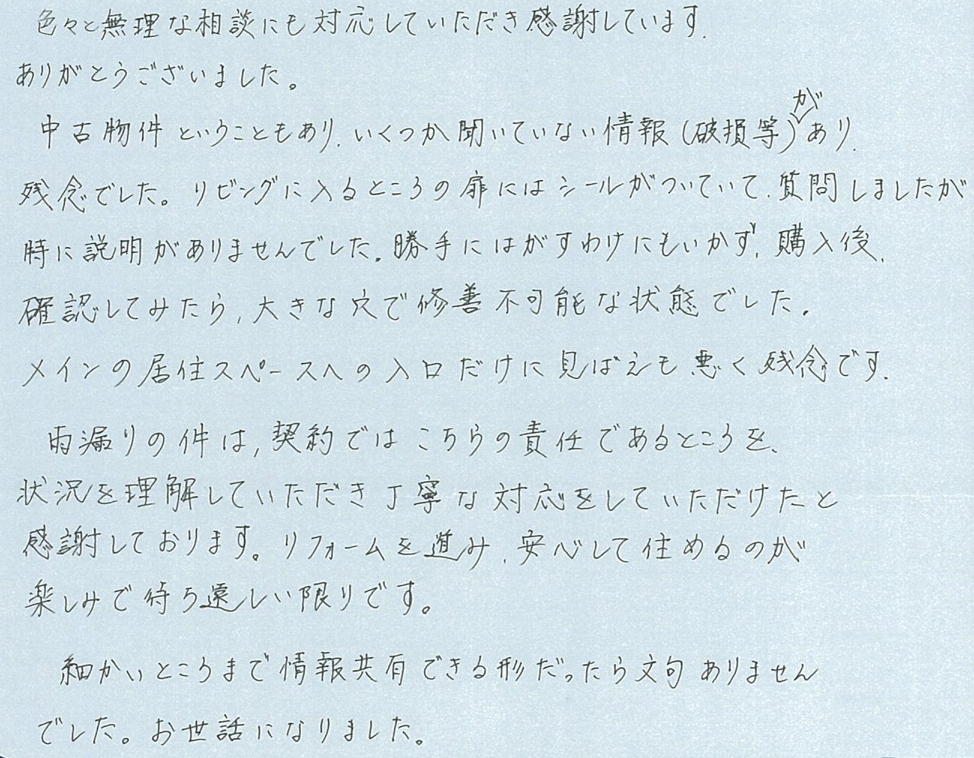 色々と無理な相談にも対応していただき感謝しています.
ありがとうございました。
中古物件ということもあり、いくつか聞いていない情報(破損等)があり、
残念でした。リビングに入るところの扉にはシールがついていて、質問しましたが
時に説明がありませんでした。勝手にはがすわけにもいかず、購入後、
確認してみたら、大きな穴で修善不可能な状態でした。
メインの居住スペースへの入口だけに見ばえも悪く残念です.
雨漏りの件は、契約ではこちらの責任であるところを、
状況を理解していただき丁寧な対応をしていただけたと
感謝しております。リフォームを進み、安心して住めるのが
楽しみで待ち遠しい限りです。
細かいところまで情報共有できる形だったら文句ありません
でした。お世話になりました。